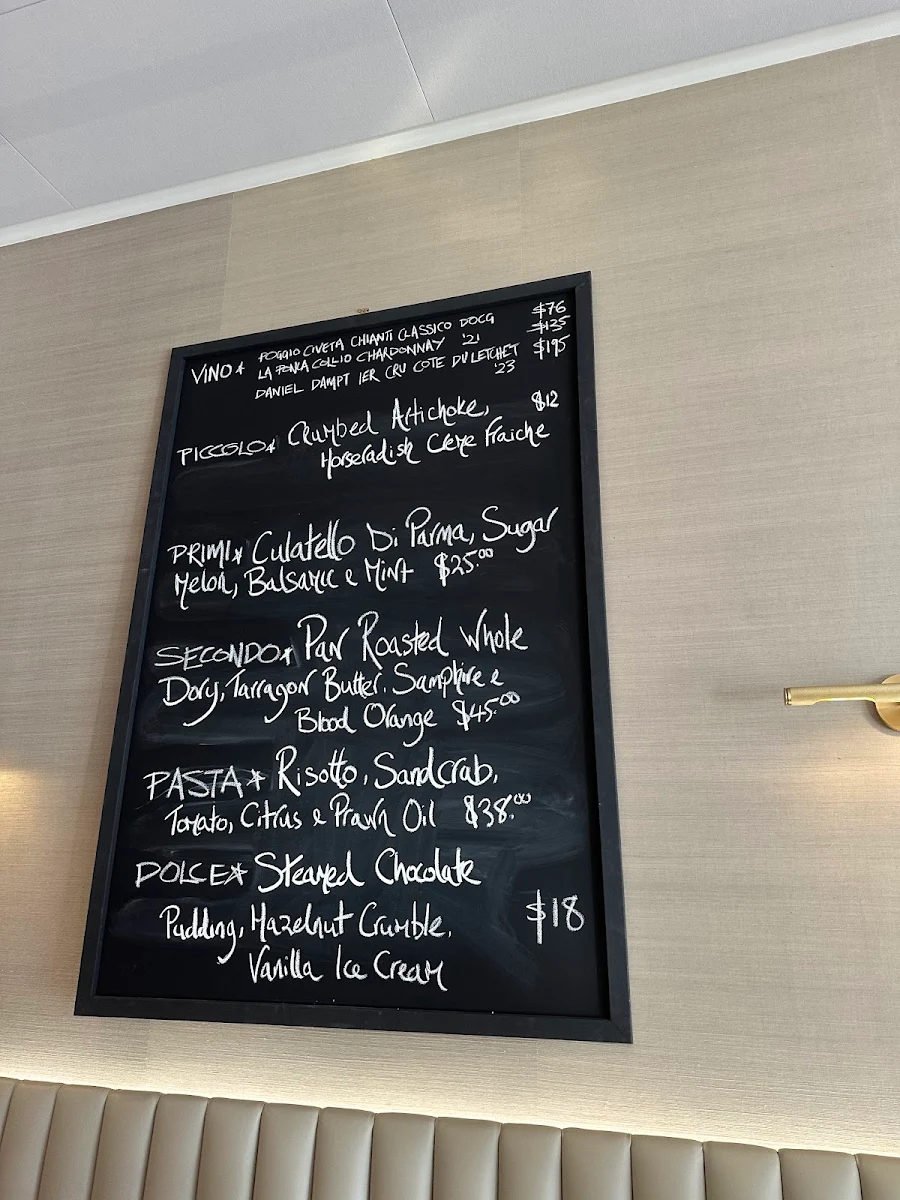 VINO* POGGIO CIVETA CHIANTI CLASSICO DOCG $76
LA PONCA COLLIO CHARDONNAY '21 $135
DANIEL DAMPT 1ER CRU COTE DU LETCHET '23 $195
PICCOLO* Crumbed Artichoke, $12
Horseradish Creme Fraiche
PRIMI* Culatello Di Parma, Sugar
Melon, Balsamic e Mint $25.00
SECONDO* Pan Roasted Whole
Dory, Tarragon Butter, Samphire e
Blood Orange $45.00
PASTA* Risotto, Sandcrab,
Tomato, Citrus e Prawn Oil $38.00
DOLCE* Steamed Chocolate
Pudding, Hazelnut Crumble, $18
Vanilla Ice Cream